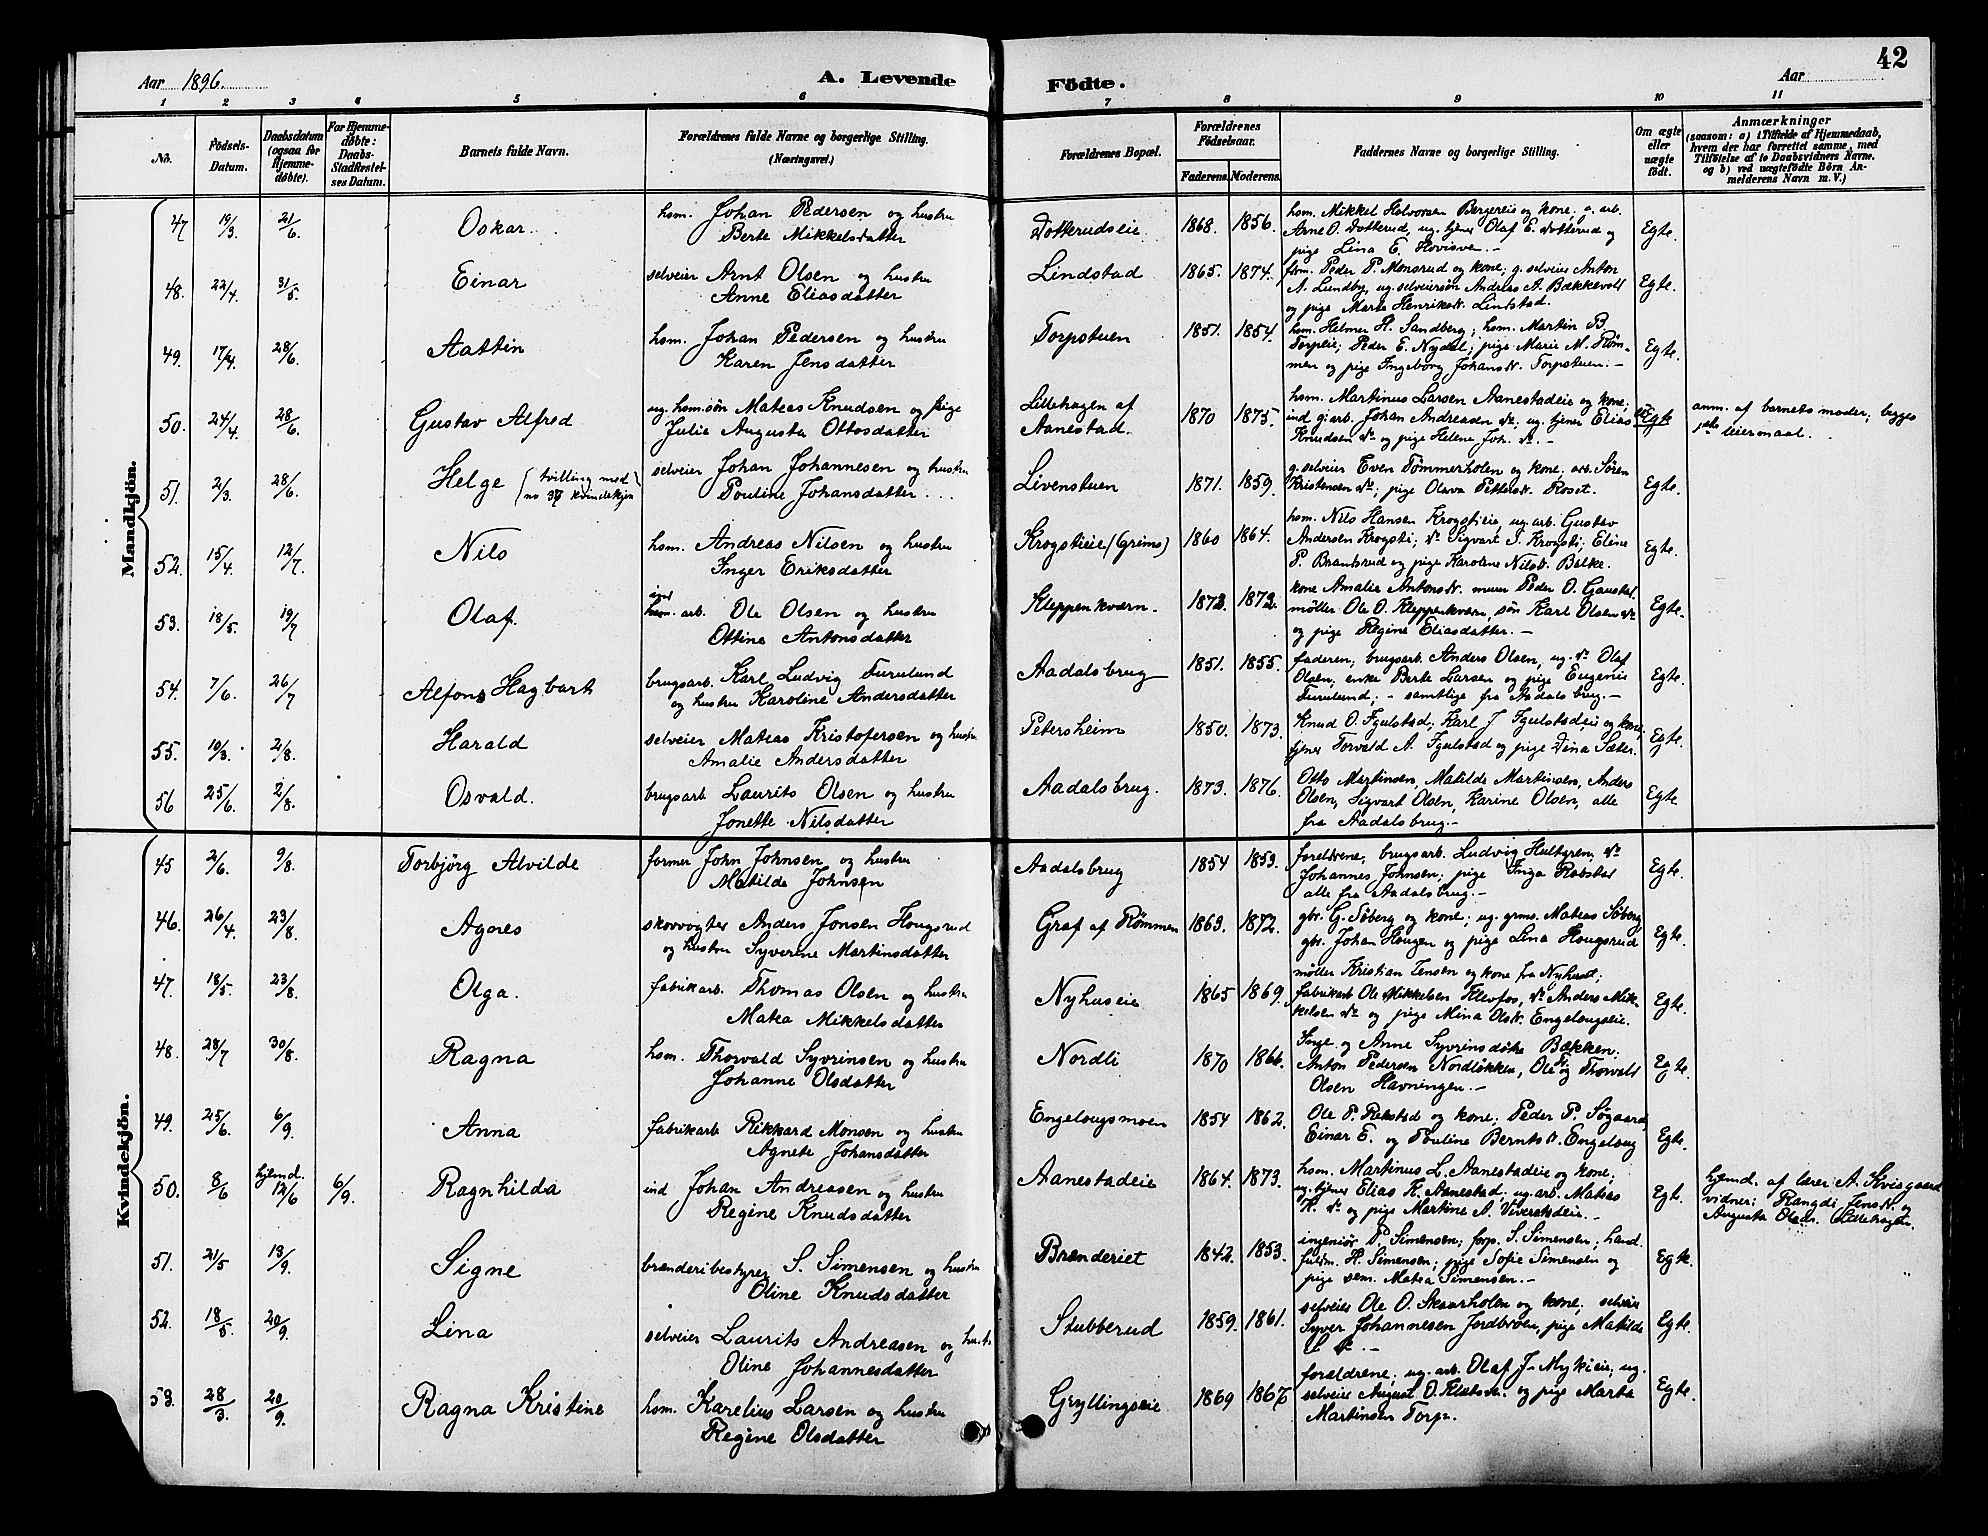 42
Aar 1896.
A. Levende Födte.
Aar
1 2 3 4 5 6 7 8 9 10 11
No.
Födsels-Datum.
Daabsdatum (ogsaa for Hjemme-döbte).
For Hjemme-döbte: Daabs-Stadfæstel-ses Datum.
Barnets fulde Navn.
Forældrenes fulde Navne og borgerlige Stilling. (Næringsvei.)
Forældrenes Bopæl.
Forældrenes Födselsaar.
Faderens. Moderens.
Faddernes Navne og borgerlige Stilling.
Om ægte eller uægte födt.
Anmærkninger
(saasom: a) i Tilfælde af Hjemmedaab, hvem der har forrettet samme, med Tilföielse af to Daabsvidners Navne. og b) ved uægtefödte Börn An-melderens Navn m. V.)
Mandkjön.
47 19/3. 21/6. Oskar. hsm. Johan Pedersen og hustru
Berte Mikkelsdatter
Dotterudseie 1868. 1856. hsm. Mikkel Halvorsen Bergereie og kone; g. arb.
Arne O. Dotterud, ug. tjener Olaf E. Dotterud og
pige Lina E. Hovisve.- Egte.
48. 22/4. 31/5. Einar selveier Arnt Olsen og hustru
Anne Eliasdatter
Lindstad 1865. 1874. fhm. Peder P. Monsrud og kone; g. selveier Anton
A. Lundby, ug. selveiersön Andreas A. Bækkevolt
og pige Marte Henriksdt. Lindstad. Egte.
49. 17/4. 28/6. Aattin hsm. Johan Pedersen og hustru
Karen Jensdatter
Torpstuen 1851. 1854. hsm. Helmer H. Sandberg; hsm. Martin B.
Torpeie; Peder E. Nydal; pige Marie M. Röm-
men og pige Ingeborg Johansdt. Torpstuen.- Egte.
50. 24/4. 28/6. Gustav Alfred ug. hsm.sön Mateas Knudsen og pige
Julie Augusta Ottosdatter
Lillehagen af Aanestad. 1870 1875. hsm. Martinus Larsen Aanestadeie og kone;
ind. g. arb. Johan Andreasen do; ug. tjener Elias
Knudsen do og pige Helene Joh. do.- Uegte
anm. af barnets moder; begges
1ste leiermaal.
51. 2/3. 28/6. Helge (tvilling med no 37 kvindekjön) selveier Johan Johannesen og hustru
Pouline Johansdatter
Livenstuen 1871. 1859. g. selveier Even Tömmerholen og kone; arb. Sören
Kristensen do; pige Olava Pettersdt. Roset. Egte.
52. 15/4. 12/7. Nils hsm. Andreas Nilsen og hustru
Inger Eriksdatter
Krogstieie (Grims) 1860 1864. hsm. Nils Hansen Krogstieie, ug. arb. Gustav
Andersen Krogsti, do Sigvart J. Krogsti; Eline
P. Brantsrud og pige Karoline Nilsdt. Bilke. Egte.
53. 18/5. 19/7 Olaf. ind. arb. Ole Olsen og hustru
Ottine Antonsdatter
Kleppenkværn. 1872. 1872. kone Amalie Antonsdt. murer Peder O. Gaustad.
möller Ole O. Kleppenkværn, sön Karl Olsen do
og pige Regine Eliasdatter.- Egte.
54. 7/6. 26/7 Alfons Hagbart brugsarb. Karl Ludvig Furulund
og hustru Karoline Andersdatter
Aadalsbrug 1851. 1855. faderen; brugsarb. Anders Olsen, ug. do Olaf
Olsen, enke Berte Larsen og pige Eugenie
Furulund; - samtlige fra Aadalsbrug.- Egte.
55. 10/3. 2/8. Harald selveier Mateas Kristofersen og hustru
Amalie Andersdatter
Petersheim 1850. 1873. Knud O. Fgulstad; Karl J. Fgulstadeie og kone;
tjener Torvald A. Fgulstad og pige Dina Sæter. Egte.
56 25/6. 2/8. Osvald. brugsarb Laurits Olsen og hustru
Jonette Nilsdatter
Aadalsbrug. 1873. 1876. Otto Martinsen, Matilde Martinsen, Anders
Olsen, Sigvart Olsen, Karine Olsen, alle
fra Aadalsbrug.- Egte
Kvindekjön.
45 2/6. 9/8. Torbjörg Alvilde former John Johnsen og hustru
Matilde Johnsen
Aadalsbrug 1854 1859. foreldrene, brugsarb. Ludvig Hultgren, do
Johannes Johnsen; pige Inga Robstad
alle fra Aadalsbrug.- Egte.
46. 26/4. 23/8. Agnes skovvogter Anders Jonsen Hougsrud
og hustru Syverine Martinsdatter
Graf af Rømmen 1869. 1872. gbr. G. Söberg og kone; ug. grms. Mateas Söberg
gbr. Johan Haugen og pige Lina Hougsrud Egte.
47. 18/5. 23/8. Olga. fabrikarb. Thomas Olsen og hustru
Matea Mikkelsdatter
Nyhuseie 1865 1869. möller Kristian Jensen og kone fra Nyhuset;
fabrikarb Ole Mikkelsen Klevfos, do Anders Mik-
kelsen do og pige Mina Olsdt. Engelaugseie. Egte.
48. 28/7 30/8. Ragna hsm. Thorvald Syvrinsen og hustru
Johanne Olsdatter
Nordli 1870 1866. Inge og Anne Syvrinsdötre Bækken;
Anton Pedersen Nordlökken, Ole og Thorvald
Olsen Havningen.- Egte.
49. 25/6. 6/9 Anna fabrikarb Rikkard Monsen og hustru
Agnete Johansdatter
Engelougsmoen 1854 1862. Ole P. Rekstad og kone; Peder P. Sögaard,
Einar E. og Pouline Berntsdt. Engeloug Egte.
50. 8/6 hjemd. 12/6 6/9. Ragnhilda ind Johan Andreasen og hustru
Regine Knudsdatter
Aanestadeie 1864. 1873. hsm. Martinus L. Aanestadeie og kone;
ug. tjener Elias K. Aanestad; ug. arb. Mateas
K. do og pige Martine A. Viverstadeie.- Egte.
hjemd. af lærer A. Kvisgaard
vidner: Rangdi Jensdt. og
Augusta Olsdt. Lillehagen.
51. 21/5 13/9. Signe brænderibestyrer S. Simensen og hustru
Oline Knudsdatter
Brænderiet 1842. 1853. ingeniör P. Simensen; forp. S. Simensen; hand.
fuldm. H. Simensen; pige Sofie Simensen og
pige sem. Matea Simensen.- Egte.
52. 18/5. 20/9. Lina selveier Laurits Andreasen og hustr.
Oline Johannesdatter
Stubberud 1859. 1861. selveier Ole O. Skaarholen og kone; selveier
Syver Johannesen Jordbroen, pige Matilde
do.- Egte.
53. 28/3. 20/9. Ragna Kristine hsm. Karelius Larsen og hustru
Regine Olsdatter
Gryllingseie 1869 1867 foreldrene; ug. arb. Olaf J. Mykieie; ug.
selveier August O. og pige Marta
Martinsen Torp. Egte.